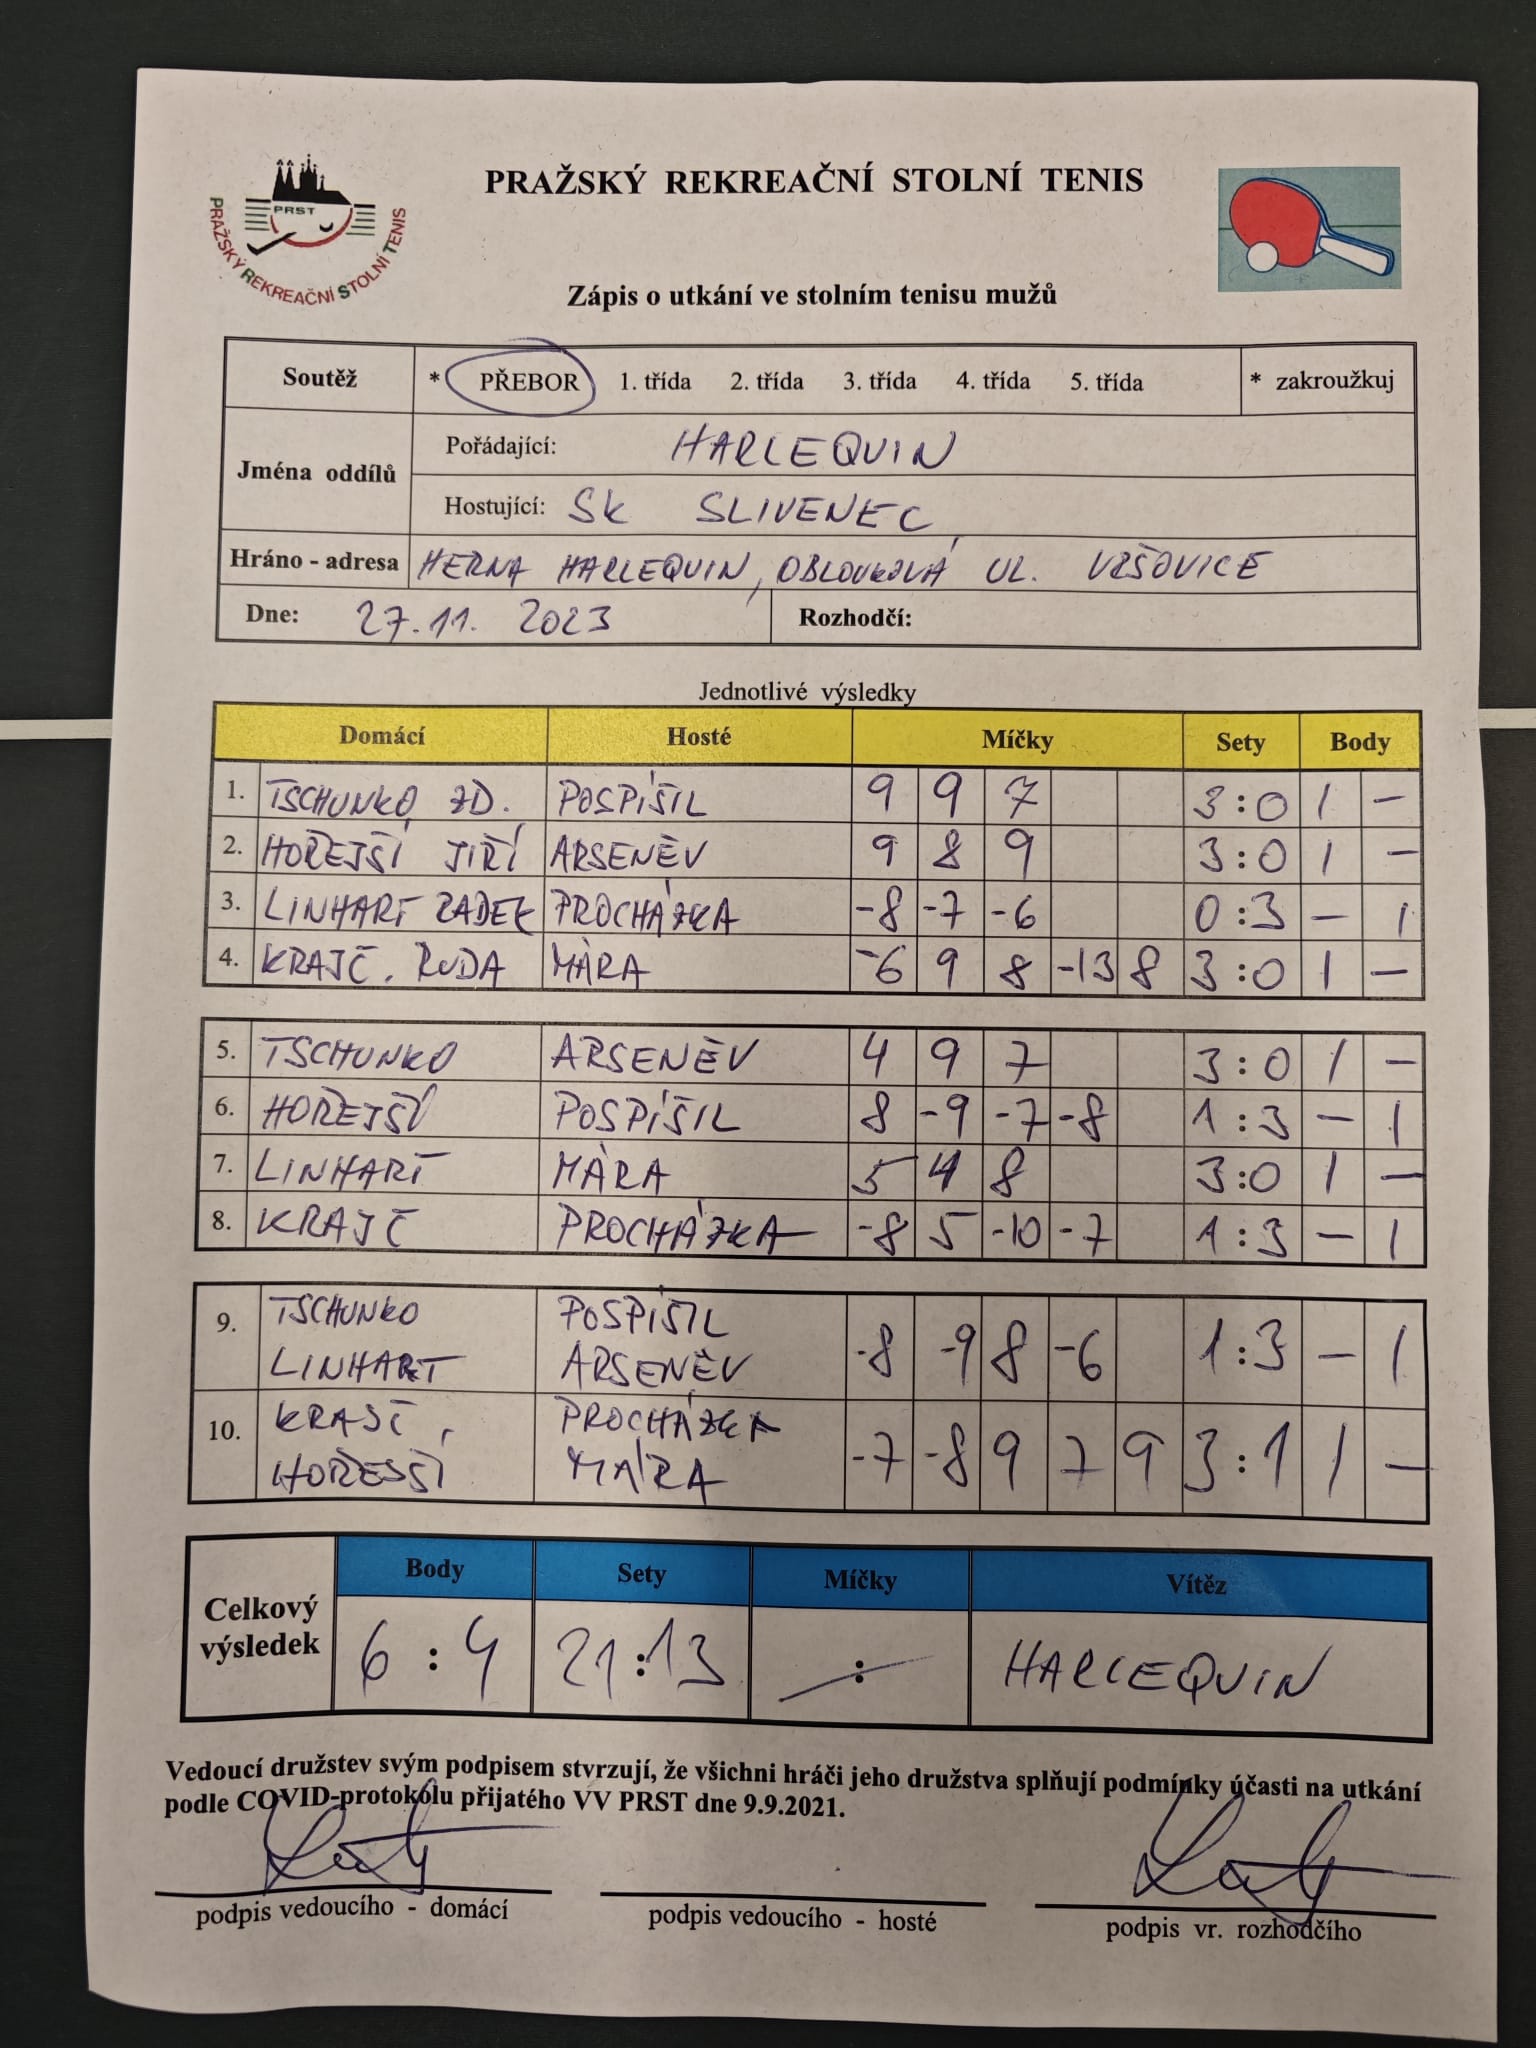 PRAŽSKÝ REKREAČNÍ STOLNÍ TENIS
PRST
PRAŽSKÝ REKREAČNÍ STOLNÍ TENIS
Zápis o utkání ve stolním tenisu mužů
Soutěž * PŘEBOR 1. třída 2. třída 3. třída 4. třída 5. třída * zakroužkuj
Jména oddílů
Pořádající: HARLEQUIN
Hostující: SK SLIVENEC
Hráno - adresa HERNA HARLEQUIN, OBLOUKOVÁ UL. VRŠOVICE
Dne: 27.11. 2023 Rozhodčí:
Jednotlivé výsledky
Domácí Hosté Míčky Sety Body
1. TSCHUNKO ZD. POSPÍŠIL 9 9 7 3:0 1 –
2. HOŘEJŠÍ JIŘÍ ARSENĚV 9 8 9 3:0 1 –
3. LINHART RADEK PROCHÁZKA -8 -7 -6 0:3 – 1
4. KRAJČ. RUDA MÁRA -6 9 8 -13 8 3:0 1 –
5. TSCHUNKO ARSENĚV 4 9 7 3:0 1 –
6. HOŘEJŠÍ POSPÍŠIL 8 -9 -7 -8 1:3 – 1
7. LINHART MÁRA 5 4 8 3:0 1 –
8. KRAJČ PROCHÁZKA -8 5 -10 -7 1:3 – 1
9. TSCHUNKO POSPÍŠIL -8 -9 8 -6 1:3 – 1
LINHART ARSENĚV
10. KRAJČ, PROCHÁZKA -7 -8 9 7 9 3:1 1 –
HOŘEJŠÍ MÁRA
Celkový výsledek
Body Sety Míčky Vítěz
6:4 21:13 : HARLEQUIN
Vedoucí družstev svým podpisem stvrzují, že všichni hráči jeho družstva splňují podmínky účasti na utkání
podle COVID-protokolu přijatého VV PRST dne 9.9.2021.
podpis vedoucího - domácí podpis vedoucího - hosté podpis vr. rozhodčího